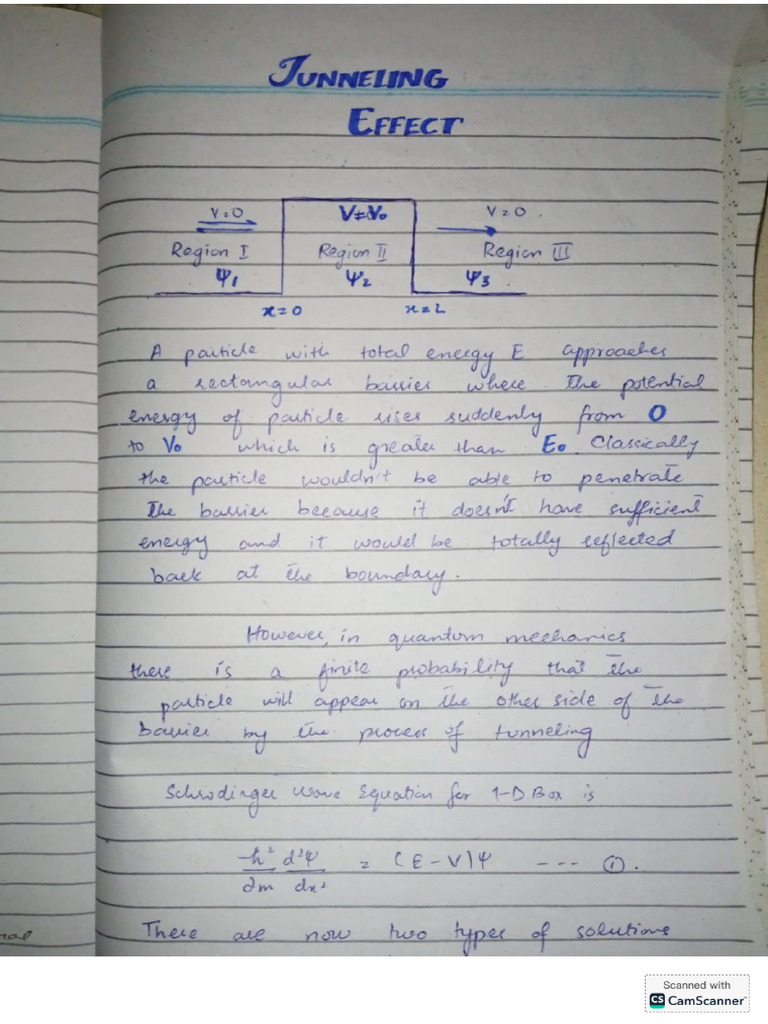 TUNNELING
EFFECT
V=0 V=V₀ V=0.
Region I Region II Region III
Ψ₁ Ψ₂ Ψ₃
x=0 x=L
A particle with total energy E approaches
a rectangular barrier where the potential
energy of particle rises suddenly from 0
to V₀ which is greater than E₀. Classically
the particle wouldn't be able to penetrate
the barrier because it doesn't have sufficient
energy and it would be totally reflected
back at the boundary.
However, in quantum mechanics
there is a finite probability that the
particle will appear on the other side of the
barrier by the process of tunneling
Schrodinger wave Equation for 1-D Box is
-ħ²/2m d²Ψ/dx² = (E-V)Ψ --- ①.
There are now two types of solutions
Scanned with
CS CamScanner